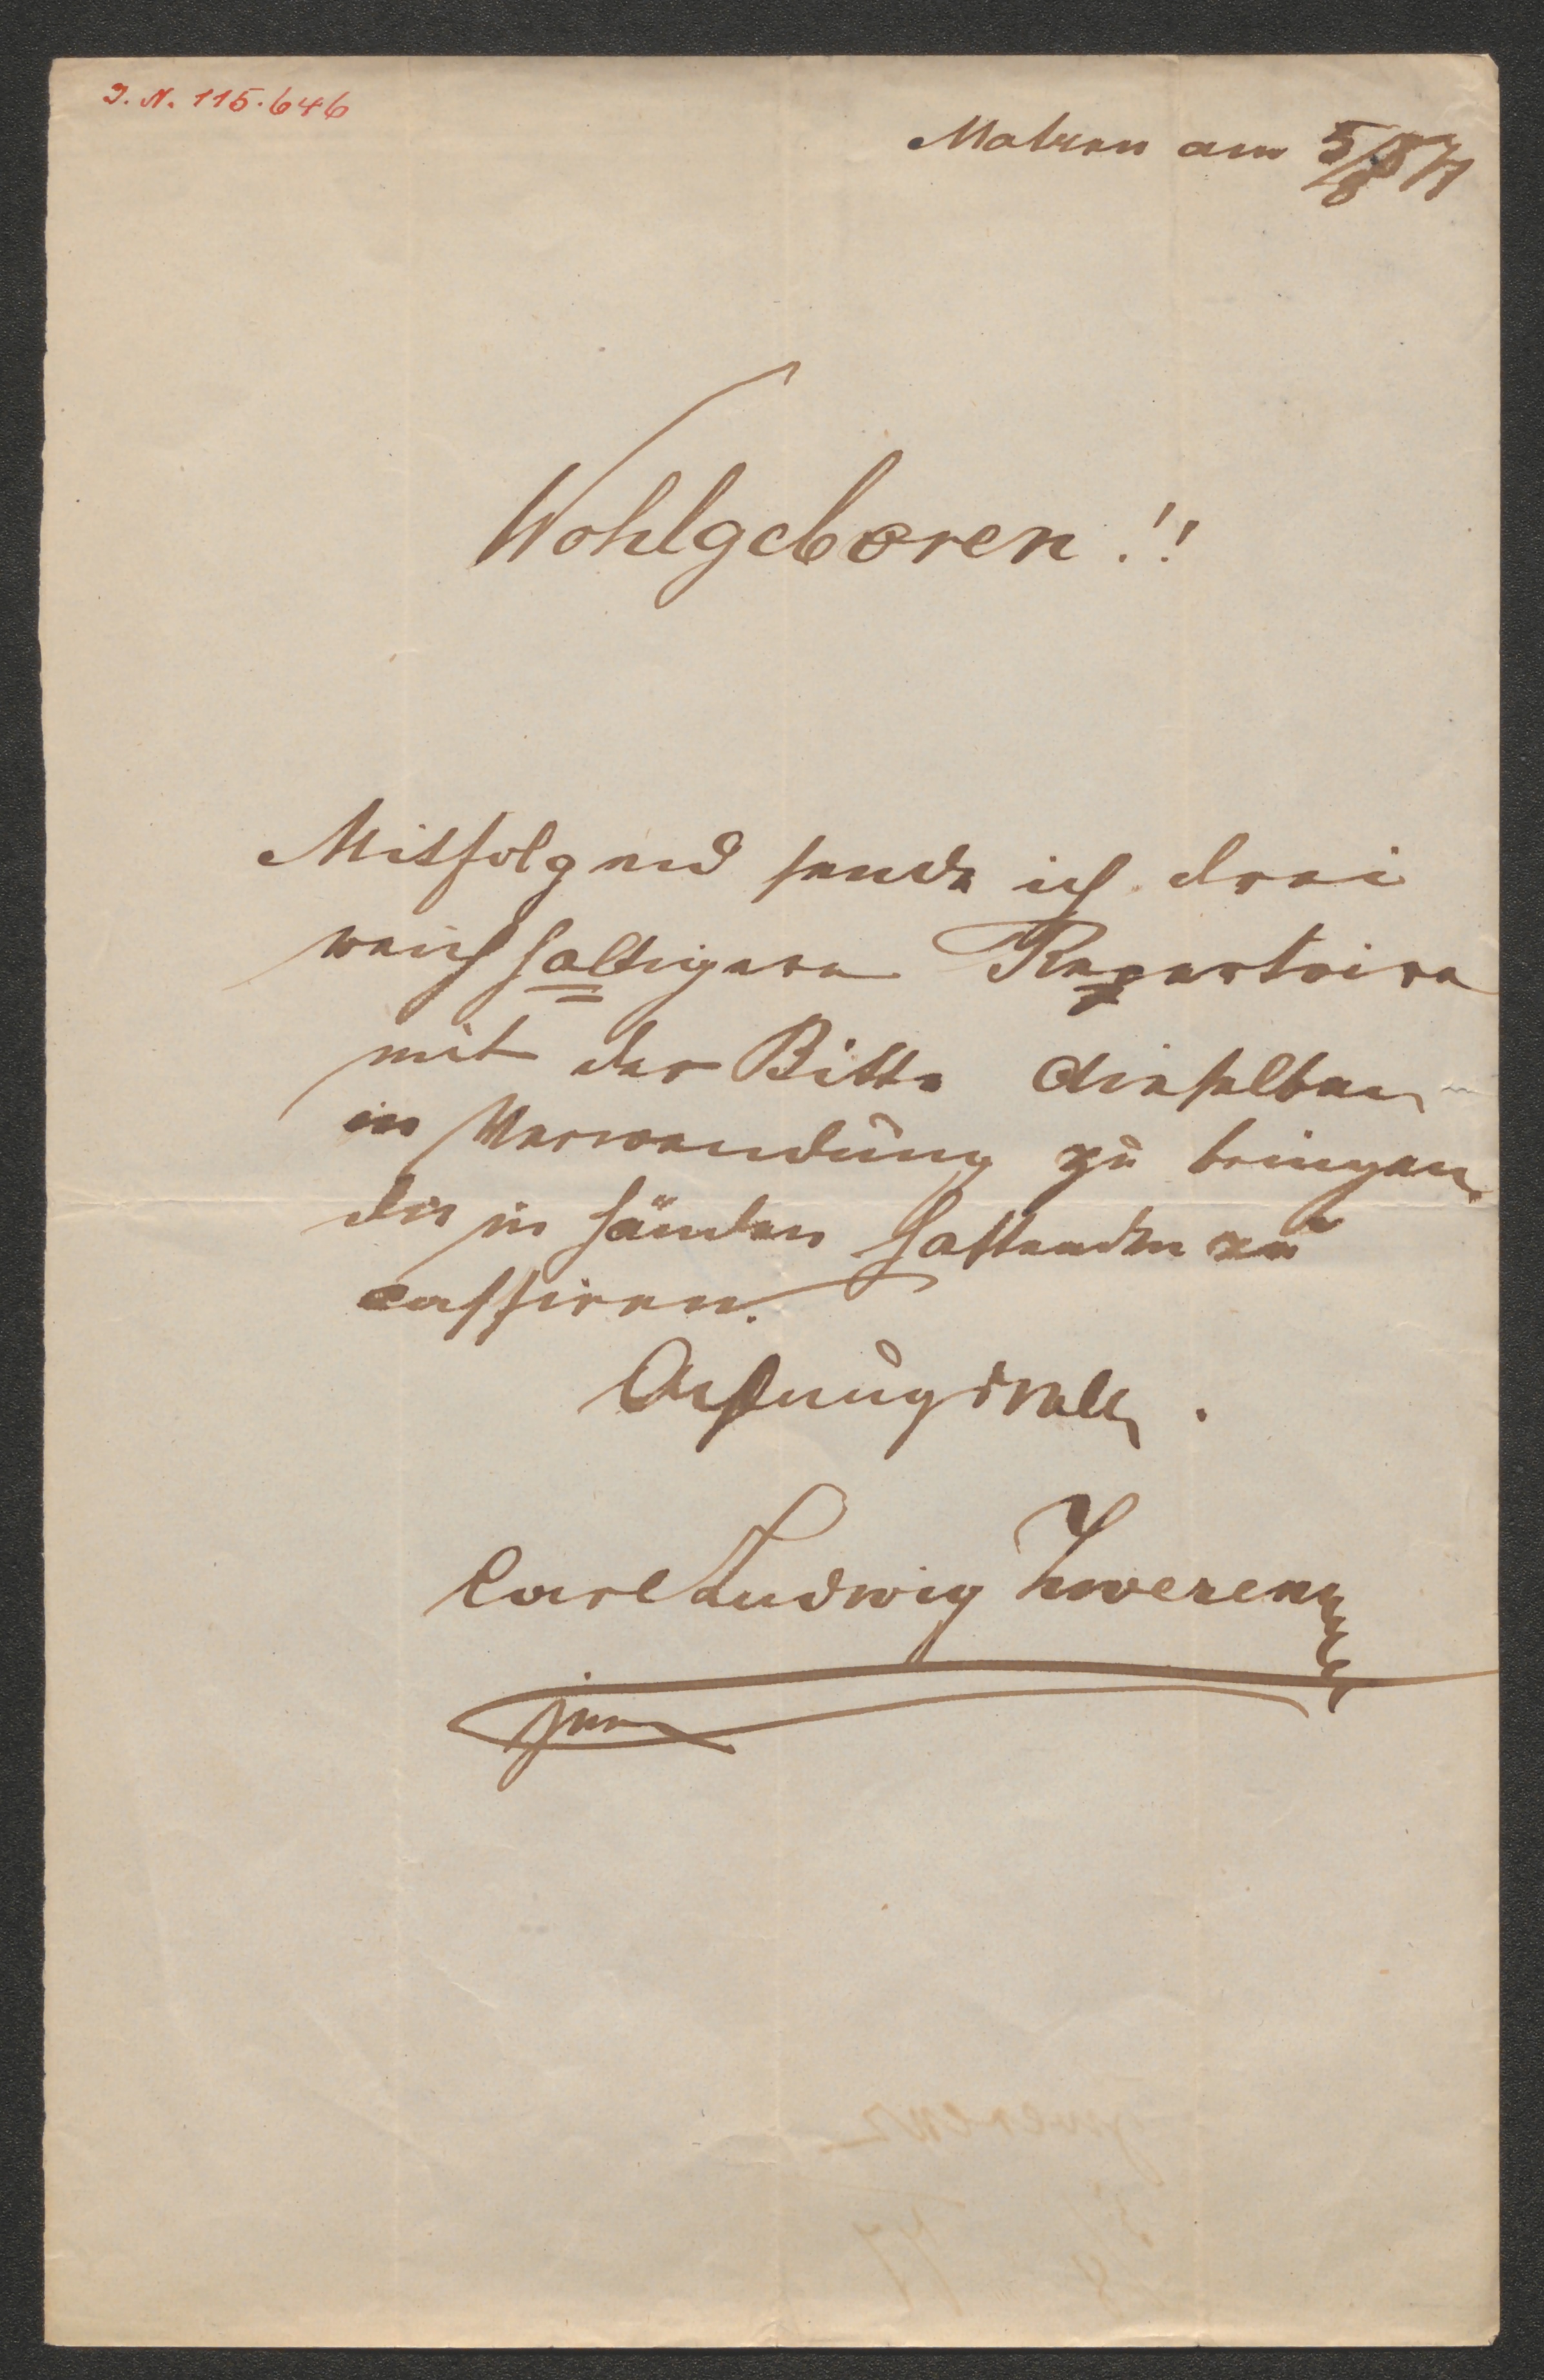 I. N. 115.646
Matzen am 5/8 77
Wohlgeboren!!
Mitfolgend sende ich drei
reichhaltigere Repertoire
mit der Bitte dieselben
in Verwendung zu bringen,
die in Händen habenden zu
cassiren.
Achtungsvoll.
Carl Ludwig Zwerenz
jun